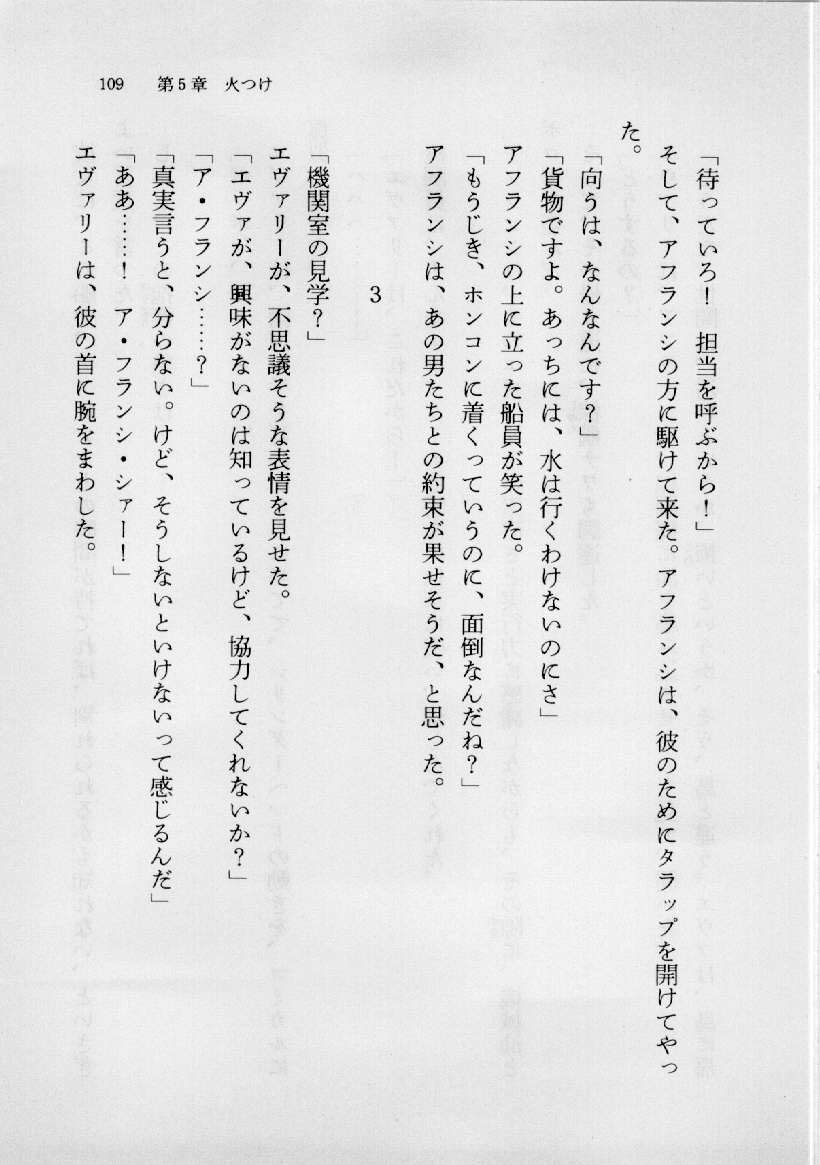 109　第5章　火つけ
「待っていろ！　担当を呼ぶから！」
そして、アフランシの方に駆けて来た。アフランシは、彼のためにタラップを開けてやっ
た。
「向うは、なんなんです？」
「貨物ですよ。あっちには、水は行くわけないのにさ」
アフランシの上に立った船員が笑った。
「もうじき、ホンコンに着くっていうのに、面倒なんだね？」
アフランシは、あの男たちとの約束が果せそうだ、と思った。
3
「機関室の見学？」
エヴァリーが、不思議そうな表情を見せた。
「エヴァが、興味がないのは知っているけど、協力してくれないか？」
「ア・フランシ……？」
「真実言うと、分らない。けど、そうしないといけないって感じるんだ」
「ああ……！　ア・フランシ・シァー！」
エヴァリーは、彼の首に腕をまわした。